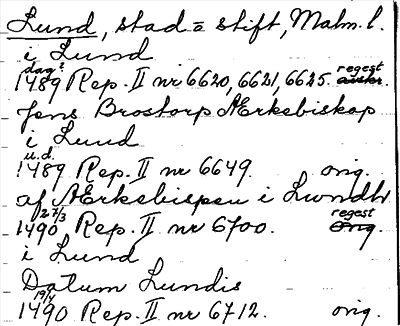 Lund, stad = stift, Malm. l.
i Lund
dag?
1489 Rep. II nr 6620, 6621, 6625. regest
Jens Brostorp Ærkebiskop
i Lund
u.d.
1489 Rep. II nr 6649. orig.
af Ærkebispen i Lwndh
27/3 regest
1490 Rep. II nr 6700. orig.
i Lund
Datum Lundis
19/4
1490 Rep. II nr 6712. orig.